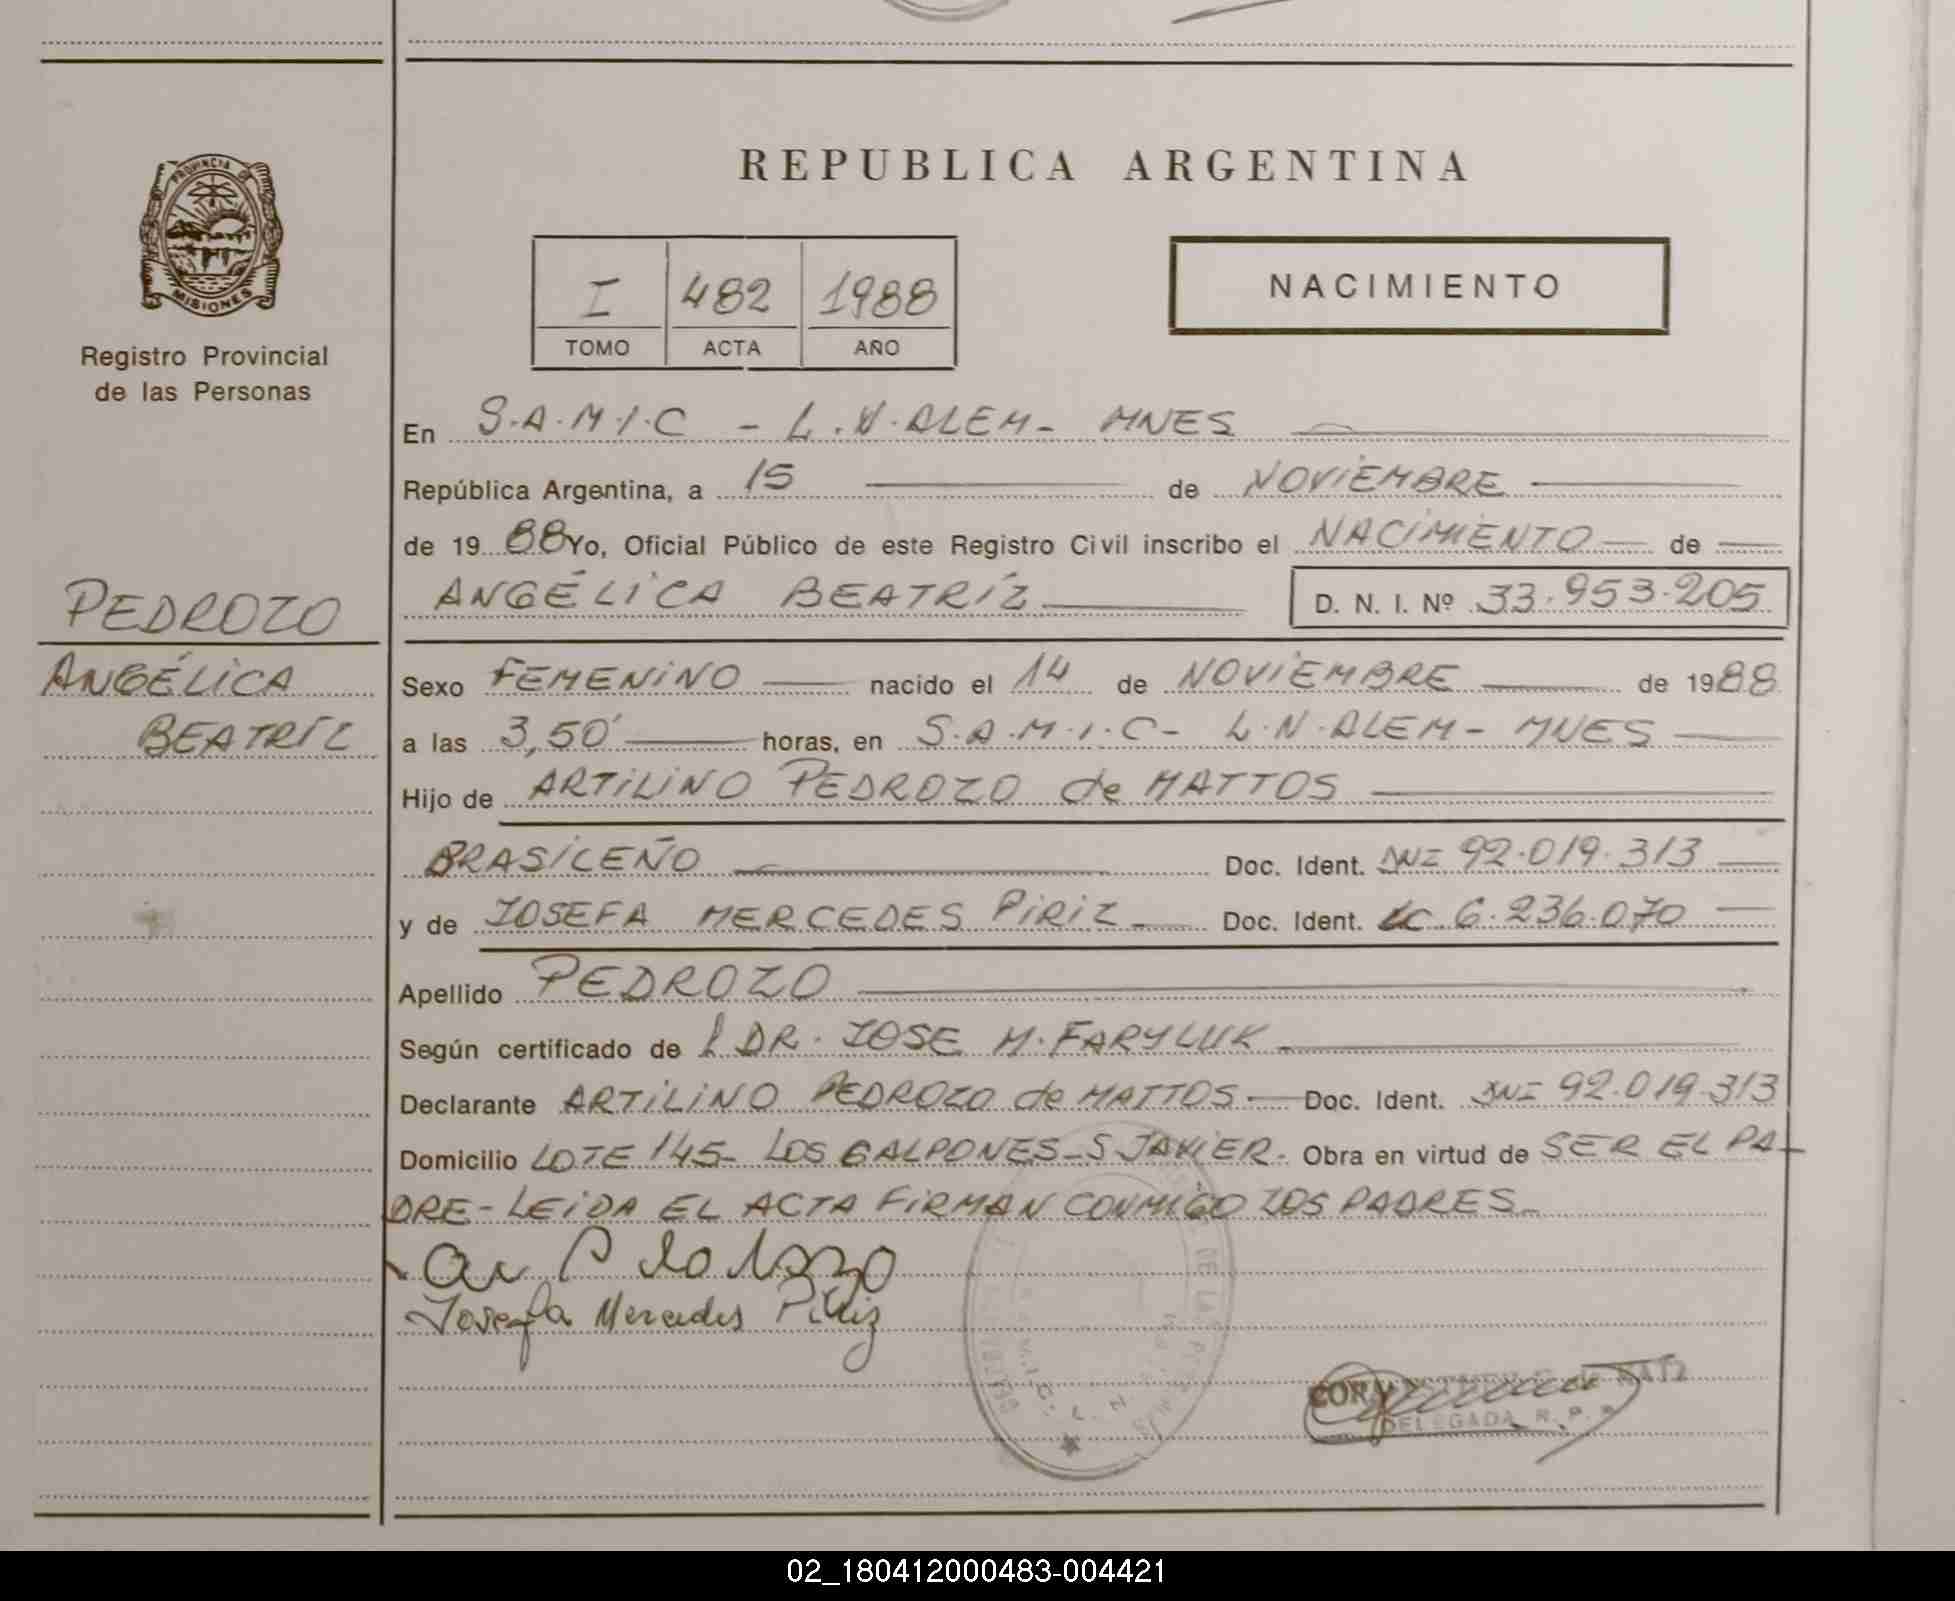 PROVINCIA DE
MISIONES
Registro Provincial
de las Personas
PEDROZO
ANGÉLICA
BEATRÍZ
REPUBLICA ARGENTINA
I 482 1988
TOMO ACTA AÑO
NACIMIENTO
En S.A.M.I.C - L.N.ALEM- MNES
República Argentina, a 15 de NOVIEMBRE
de 1988 Yo, Oficial Público de este Registro Civil inscribo el NACIMIENTO de
ANGÉLICA BEATRÍZ D. N. I. Nº 33.953.205
Sexo FEMENINO nacido el 14 de NOVIEMBRE de 1988
a las 3,50' horas, en S.A.M.I.C- L.N.ALEM- MNES
Hijo de ARTILINO PEDROZO de MATTOS
BRASILEÑO Doc. Ident. DNI 92.019.313
y de JOSEFA MERCEDES PIRIZ Doc. Ident. LC 6.236.070
Apellido PEDROZO
Según certificado de DR. JOSE M. FARYLUK
Declarante ARTILINO PEDROZO de MATTOS Doc. Ident. DNI 92.019.313
Domicilio LOTE 145- LOS GALPONES-S JAVIER. Obra en virtud de SER EL PA-
DRE- LEIDA EL ACTA FIRMAN CONMIGO LOS PADRES-
Josefa Mercedes Piriz
DELEGADA R. P. P.
02_180412000483-004421